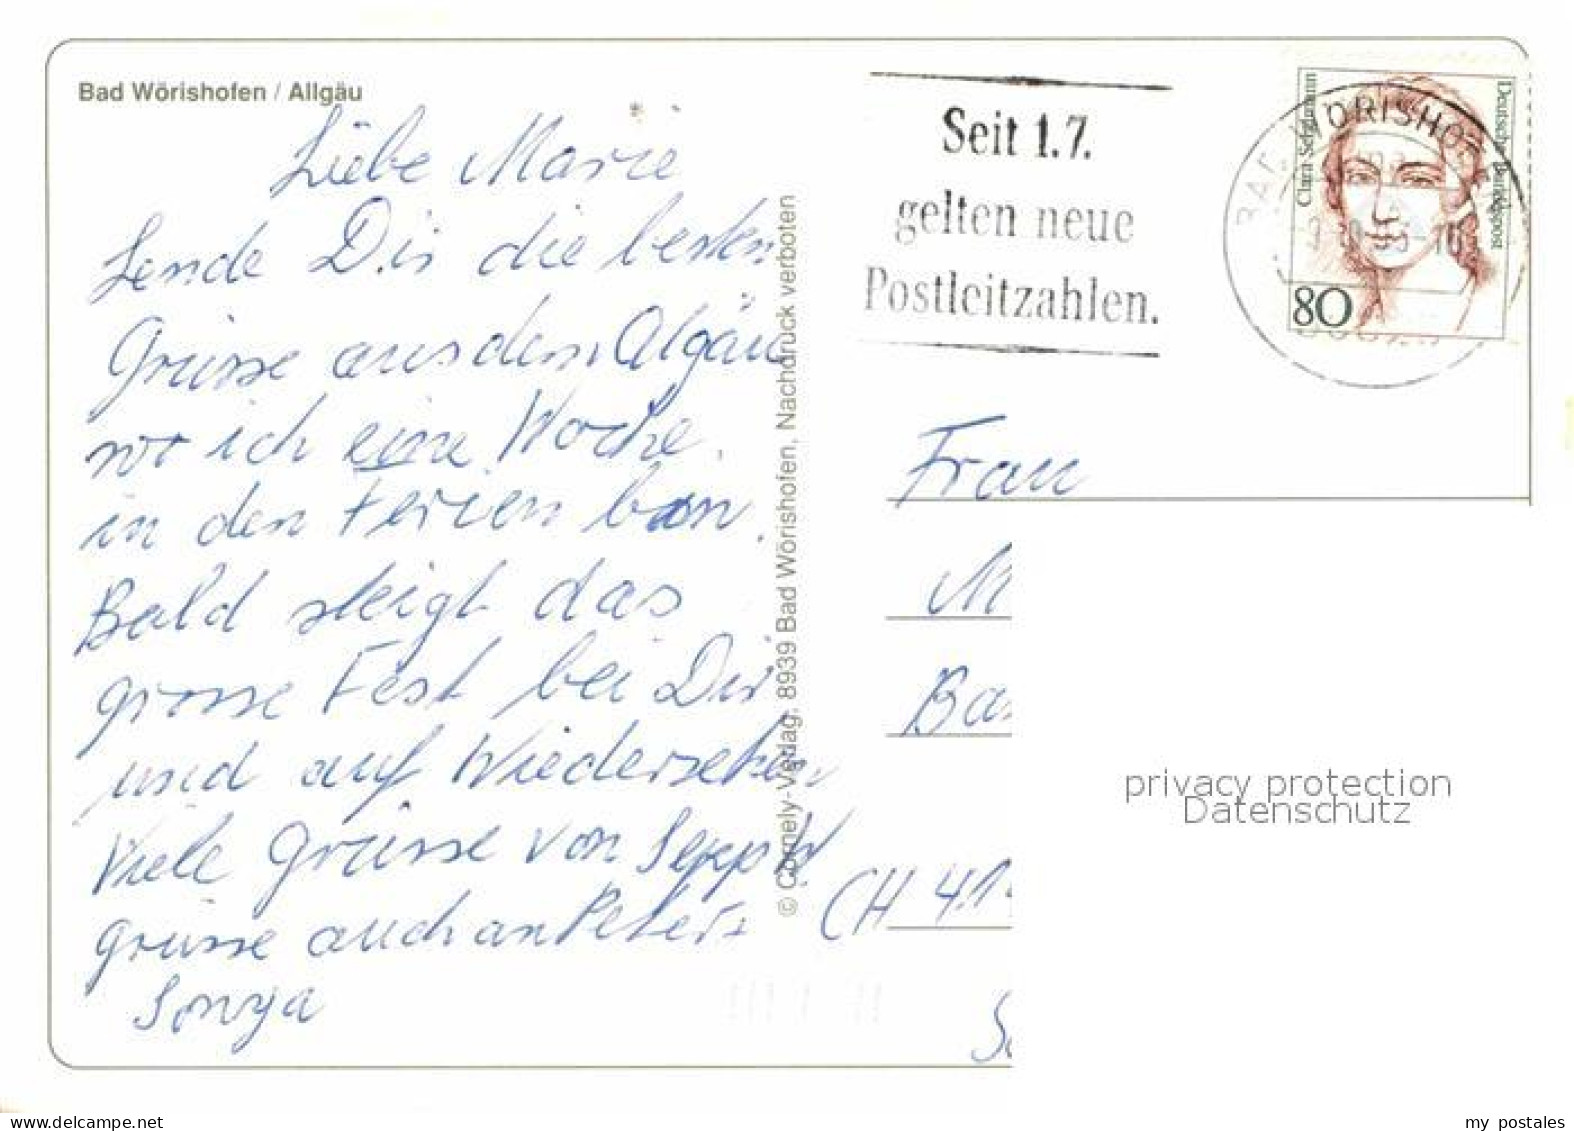 Bad Wörishofen / Allgäu
Liebe Marie
Sende Dir die besten
Grüsse aus dem Algäu
wo ich eine Woche
in den Ferien bin.
Bald steigt das
grosse Fest bei Dir
und auf Wiedersehen
Viele Grüsse von Sepp
grüsse auch an Peters
Sonya
© Cornely-Verlag, 8939 Bad Wörishofen, Nachdruck verboten
Seit 1.7.
gelten neue
Postleitzahlen.
BAD WÖRISHOFEN
Clara Schumann
Deutsche Bundespost
80
Frau
M
Ba
CH 41
S
privacy protection
Datenschutz
www.delcampe.net
my_postales